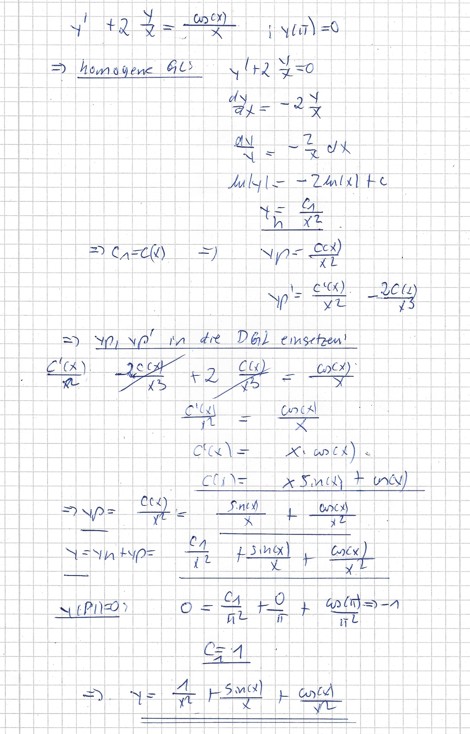 y' + 2 y/x = cos(x)/x ; y(π)=0
⇒ homogene GL: y' + 2 y/x = 0
dy/dx = -2 y/x
dy/y = -2/x dx
ln|y| = -2 ln|x| + c
yh = C1/x²
⇒ C1=C(x) ⇒ yp = C(x)/x²
yp' = C'(x)/x² - 2C(x)/x³
⇒ yp, yp' in die DGL einsetzen:
C'(x)/x² - 2C(x)/x³ + 2 C(x)/x³ = cos(x)/x
C'(x)/x² = cos(x)/x
C'(x) = x · cos(x)
C(x) = x sin(x) + cos(x)
⇒ yp = C(x)/x² = sin(x)/x + cos(x)/x²
y = yh + yp = C1/x² + sin(x)/x + cos(x)/x²
y(PI)=0: 0 = C1/π² + 0/π + cos(π)⇒-1/π²
C1 = 1
⇒ y = 1/x² + sin(x)/x + cos(x)/x²